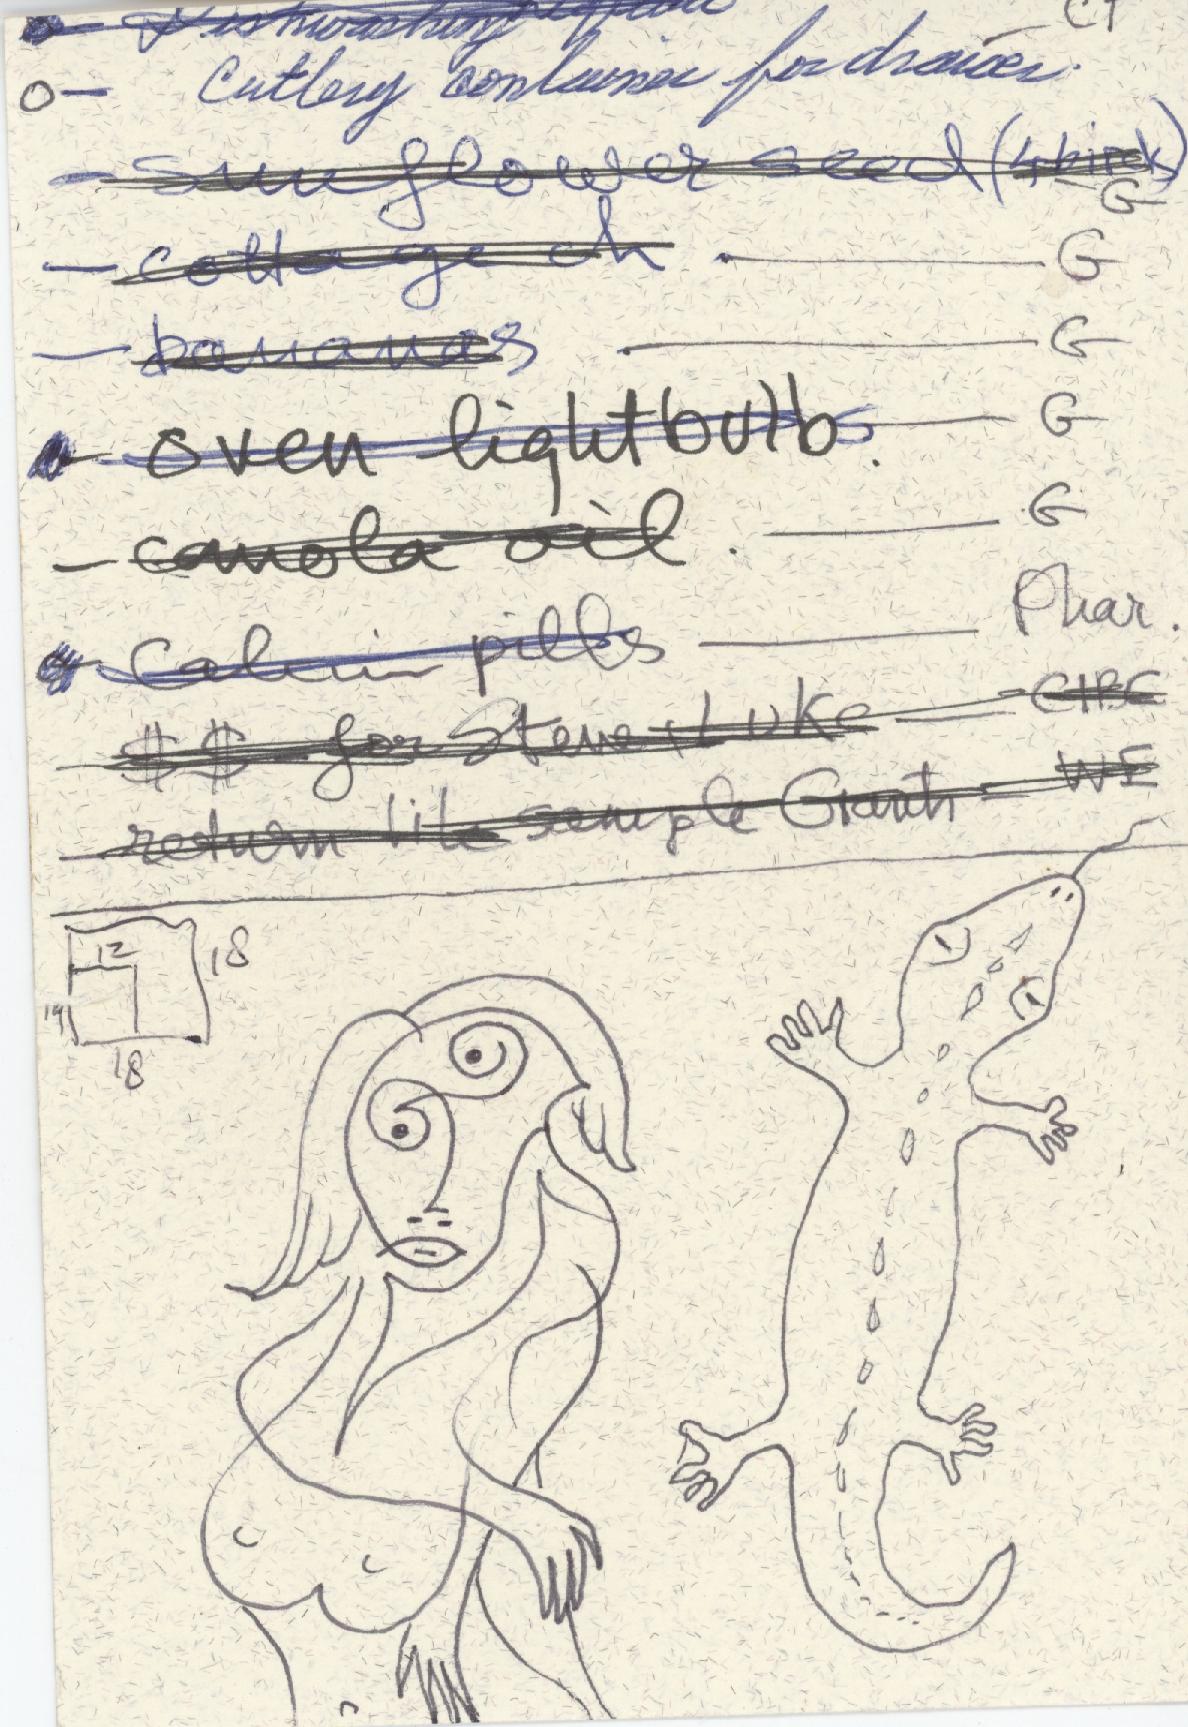 Dishwashing liquid CT
Cutlery container for drawer.
sunflower seed (4 birds)
G
cottage ch G
bananas G
oven lightbulbs. G
canola oil. G
Calcium pills Phar.
$$ for Steve + Luke CIBC
return sample Granti WE
12 18
14
18